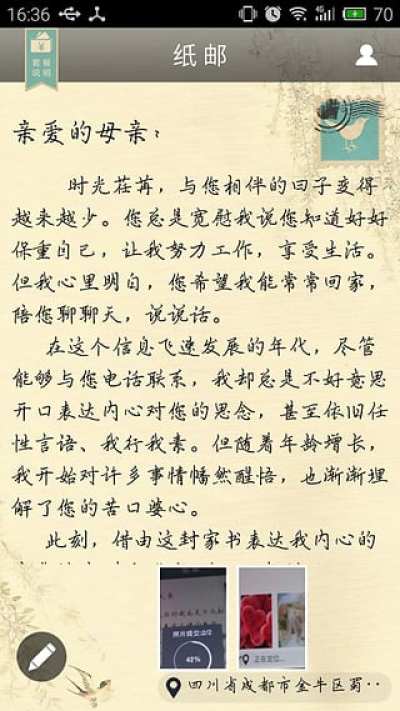 16:36
4G
70
套餐
说明
纸邮
亲爱的母亲：
时光荏苒，与您相伴的日子变得
越来越少。您总是宽慰我说您知道好好
保重自己，让我努力工作，享受生活。
但我心里明白，您希望我能常常回家，
陪您聊聊天，说说话。
在这个信息飞速发展的年代，尽管
能够与您电话联系，我却总是不好意思
开口表达内心对您的思念，甚至依旧任
性言语、我行我素。但随着年龄增长，
我开始对许多事情幡然醒悟，也渐渐理
解了您的苦口婆心。
此刻，借由这封家书表达我内心的
42%
正在定位...
四川省成都市金牛区蜀··